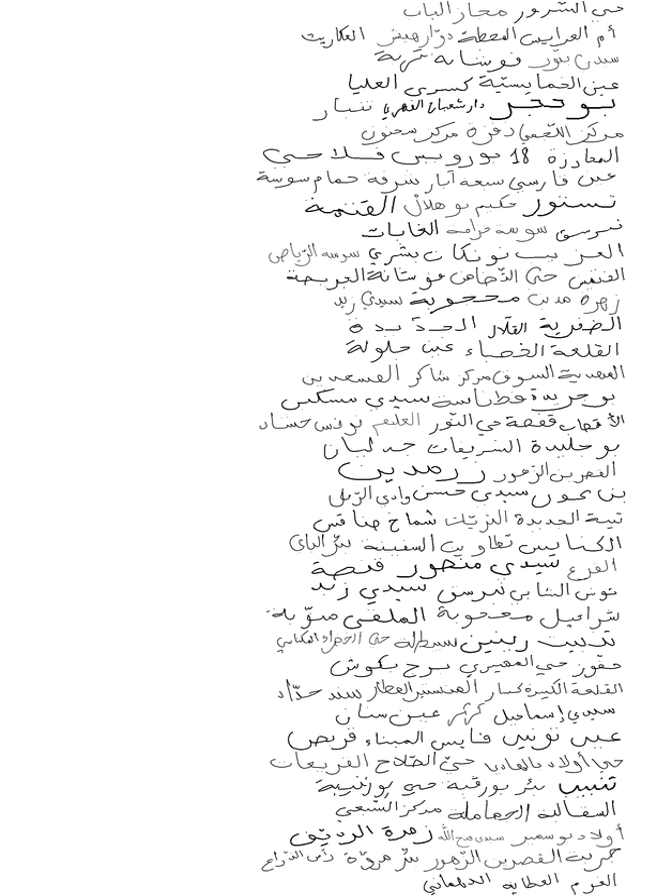 حي السرور مجاز الباب
أم العرايس المحطة دوّار هيشر العكاريت
سيدي بنّور فوشانة قربة
عين الخمايسيّة كسرى العليا
بو حجر دار شعبان الفهري نيبار
مركز اللّجمي دقّة مركز سحنون
المعازة 18 بورويس فلاحي
عين فارسي سبعة آبار شرفة حمام سوسة
تستور حكيم بو هلال القتمة
نبرسق سوسة قرامة الغابات
سوسة الرّياض
حيّ الدّخاض فوشانة الجريصة
زهرة مدين محجوبة سيدي زيد
الضفرية القلال الجديدة
القلعة الخصباء عين جلولة
المهدية السوق مركز شاكر
بوجريدة قطناسة سيدي مسكين
الأقصاب قفصة حي النّور تونس حشاد
بو جليدة الشريفات جدليان
القصرين الزّهور زرمدين
بن عون سيدي حسن وادي الرّمل
تيبة الجديدة الزيّات شماخ صفاقس
الكنايس تطاوين السفينة بئر الباي
القرع سيدي منصور قفصة
تونس الشابي نبرسق سيدي زيد
شرائيل معجوبة الملقى منوّبة
تدينت ربنين سبيطلة حيّ الخضراء المكناسي
حفّوز حي المهيري برج بكوش
القلعة الكبيرة كسار المنستير العطار سند حدّاد
سيدي إسماعيل كركر عين سنان
عين تونين قابس الميناء قربص
حي أولاد بالهادي حيّ الفلاح الفريعات
تنبيب بئر بورقبة حي بورقيبة
السقالبة الحمّاملة مركز الشعبي
أولاد بوسمير زهرة الرديّف
جربة القصرين الزّهور بئر مروّة رأس الذراع
القرم العطاية الدهماني